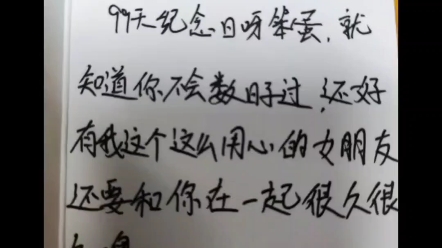 99天纪念日呀笨蛋,就
知道你不会数日子过,还好
有我这个这么用心的女朋友
还要和你在一起很久很